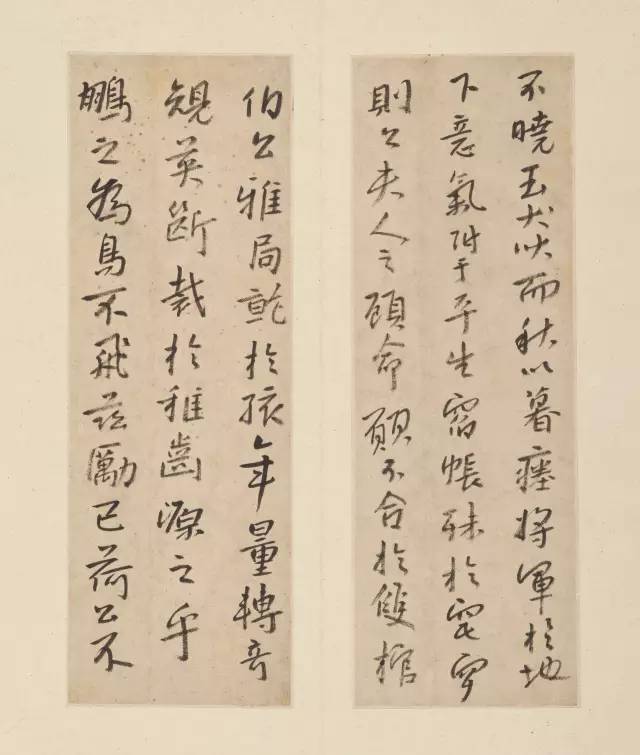 不曉玉犬吠而秋以暮瘞將軍於地
下意氣附于平生宿帳殊於窀穸
則公夫人之顧命願不合於雙棺
伯公雅局乾於孩年量轉奇
覞英斷裁於稚齒源之乎
鵬之為鳥不飛茲勵已荷公不